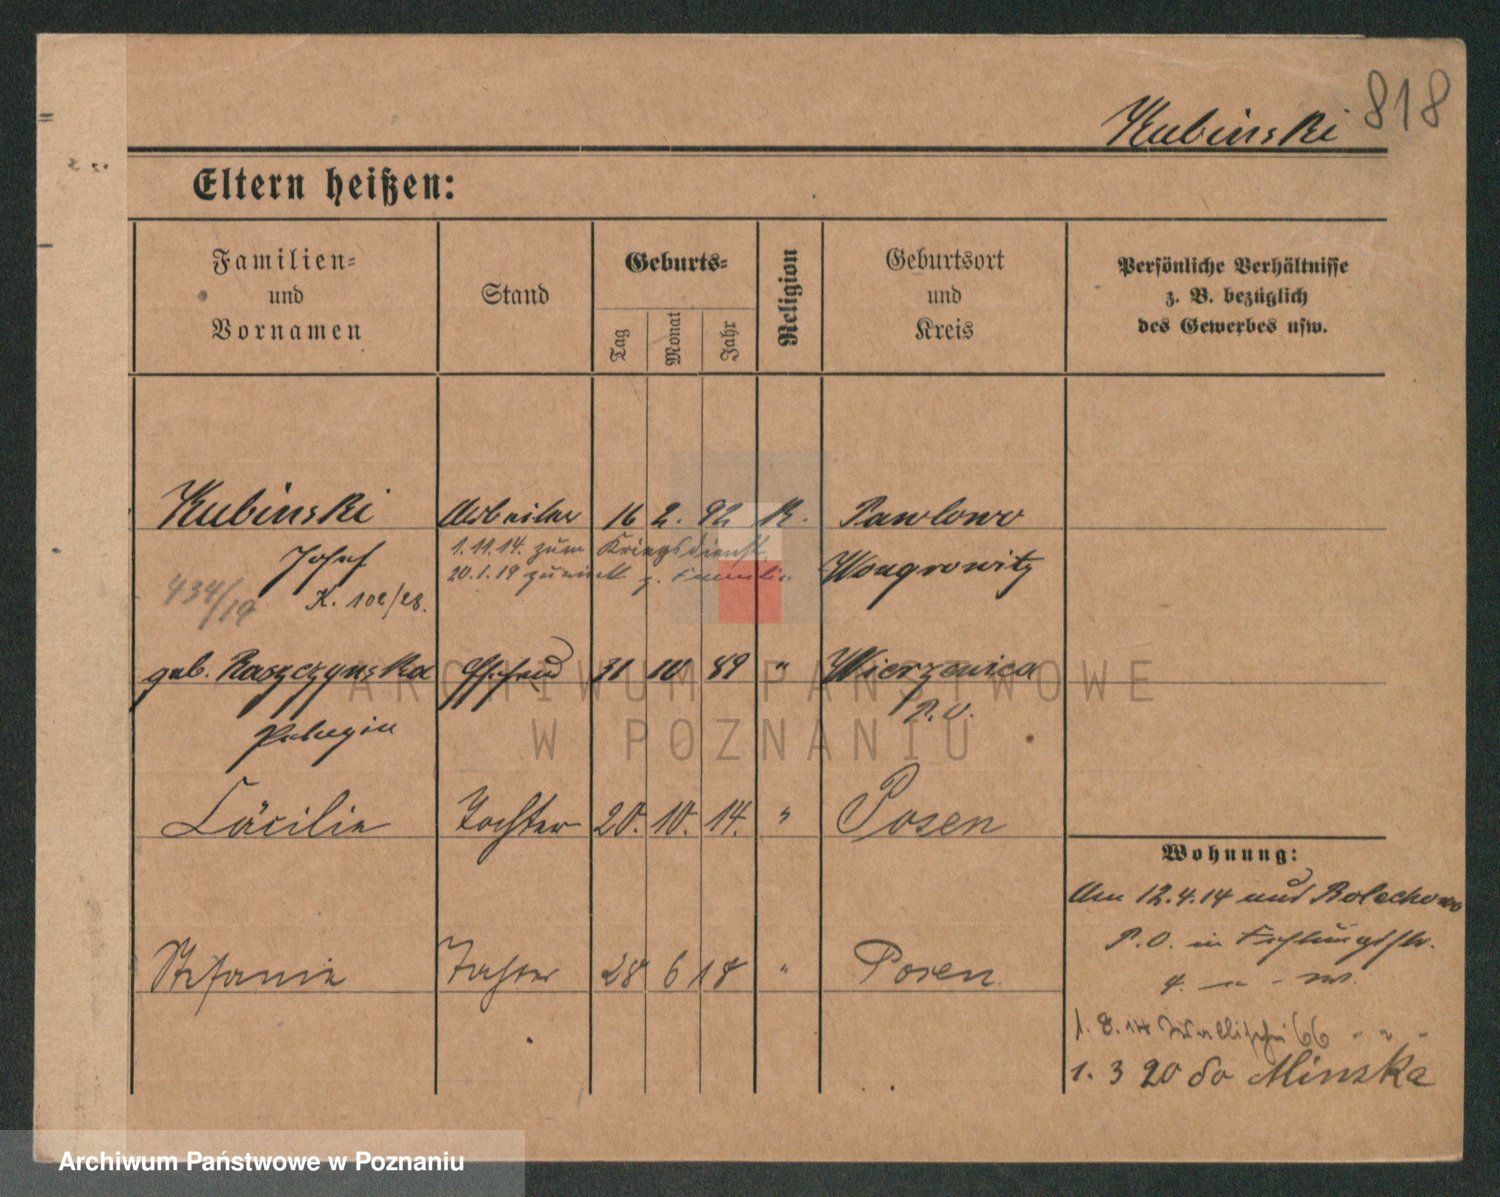 Kubinski 818
Eltern heißen:
Familien-
und
Vornamen
Stand
Geburts-
Tag
Monat
Jahr
Religion
Geburtsort
und
Kreis
Persönliche Verhältnisse
z. B. bezüglich
des Gewerbes usw.
Kubinski Arbeiter 16 2. 92 K. Pawlowo
Josef 1.11.14. zum Kriegsdienst. Wongrowitz
20.1.19 zurück z. Familie
434/19 K. 102/28.
geb. Raszczynska Ehefrau 31 10 89 " Wierzenica
Pelagia P.O.
Cäcilie Tochter 20. 10. 14. " Posen
Stefanie Tochter 28 6 18 " Posen
Wohnung:
Am 12.4.14 aus Bolechowo
P.O. in
1.8.14 Wallischei 66 - " -
1.3 20 do Minska
ARCHIWUM PAŃSTWOWE
W POZNANIU
Archiwum Państwowe w Poznaniu